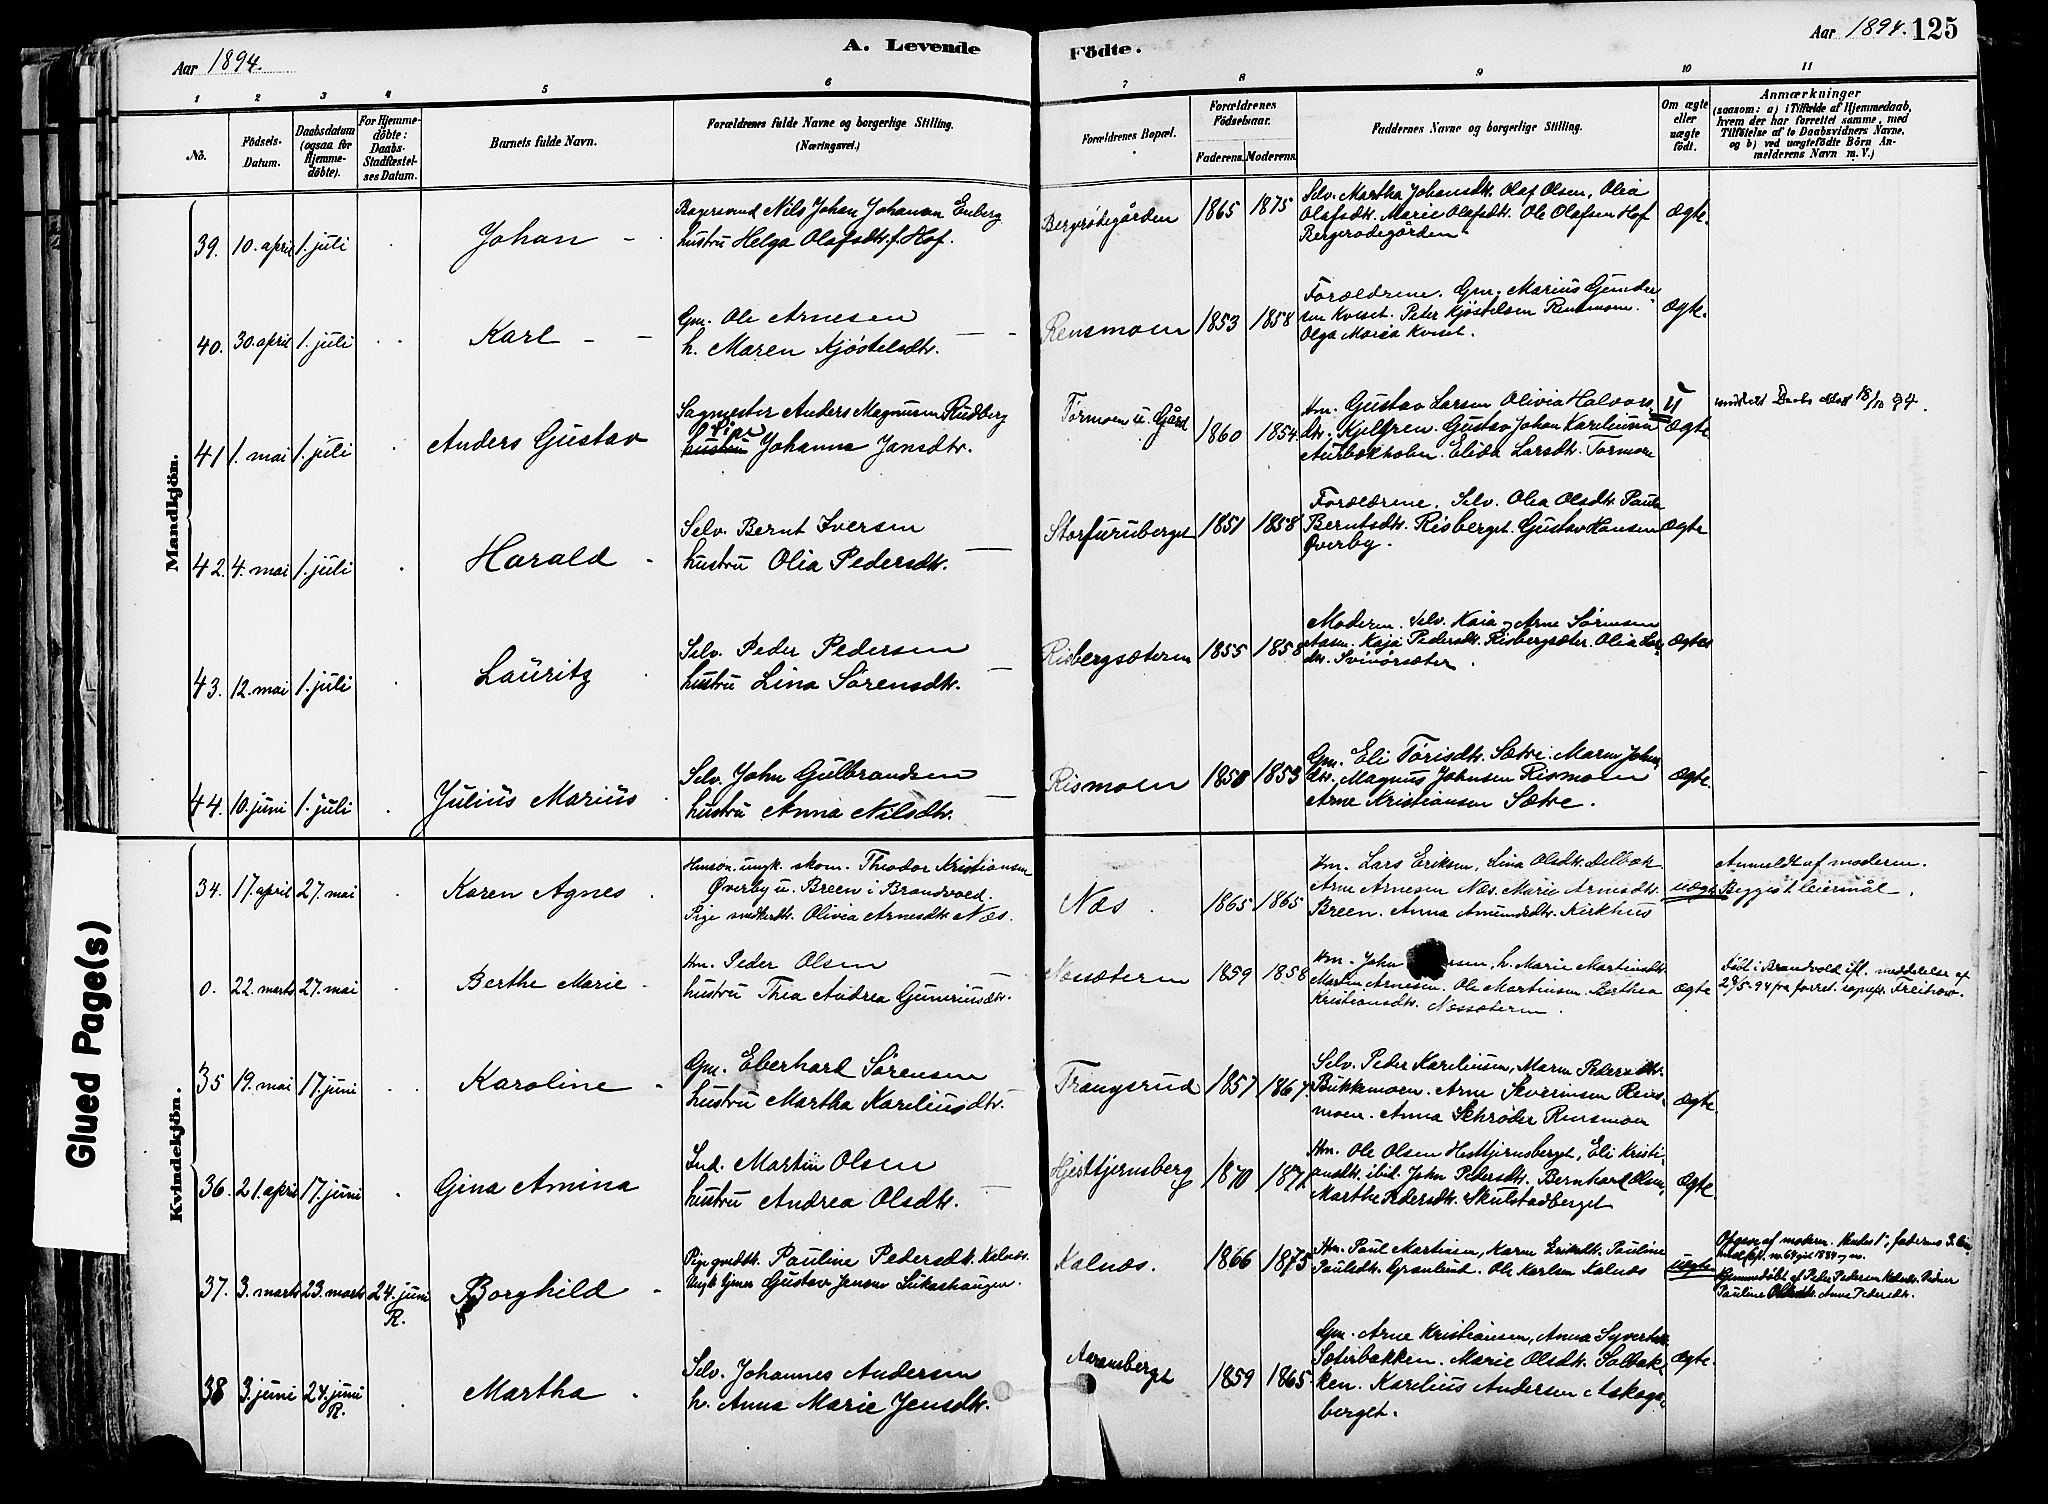 Aar 1894.
A. Levende
Födte.
Aar 1894. 125
1 2 3 4 5 6 7 8 9 10 11
No.
Födsels-Datum.
Daabsdatum (ogsaa for Hjemmedöbte).
For Hjemmedöbte: Daabs-Stadfæstelses Datum.
Barnets fulde Navn.
Forældrenes fulde Navne og borgerlige Stilling.
(Næringsvei.)
Forældrenes Bopæl.
Forældrenes Födselsaar.
Faderens. Moderens.
Faddernes Navne og borgerlige Stilling.
Om ægte eller uægte födt.
Anmærkninger
(saasom: a) i Tilfælde af Hjemmedaab, hvem der har forrettet samme, med Tilföielse af to Daabsvidners Navne, og b) ved uægtefödte Börn Anmelderens Navn m. V.)
Mandkjön.
39. 10. april 1. juli Johan
Nils Johan Johansen Enberg
hustru Helga Olafsdtr. f. Hof.
Bergrödegården 1865 1875
Selv. Martha Johansdtr. Olaf Olsen, Olia
Olafsdtr. Marie Olafsdtr. Ole Olafsen Hof
Bergerødegården
Ægte
40. 30. april 1. juli Karl
Gm. Ole Arnesen
h. Maren Kjöstelsdtr.
Rensmoen 1853 1858
Forældrene. Gm. Marius Gunder
sen Kveset. Peter Kjöstelsen Rensmoen.
Olga Maria Kveset.
Ægte.
41 1. mai 1. juli Anders Gustav
Sagmester Anders Magnusen Rudberg
Pige
hustru Johanna Jansdtr.
Tørmoen u. Gård 1860 1854
Hm. Gustav Larsen Olivia Halvors-
dtr. Kjelgren. Gustav Johan Kareliusen
Elida Larsdtr. Tormoen
U
Ægte
18/10 94.
42. 4. mai 1. juli Harald
Selv. Bernt Iversen
hustru Olia Pedersdtr.
Storfuruberget 1851 1858
Forældrene. Selv. Olia Olsdtr. Paula
Berntsdtr. Risberget. Gustav Hansen
Øverby.
Ægte
43. 12. mai 1. juli Lauritz
Selv. Peder Pedersen
hustru Lina Sörensdtr.
Risbergsæteren 1855 1858
Moderen. Selv. Kaia og Arne Sörensen
Aasen. Kaja Pedersdtr. Risbergsæter. Olia Lars-
dtr. Svinörsæter.
Ægte
44. 10. juni 1. juli Julius Marius
Selv. John Gulbrandsen
hustru Anna Nilsdtr.
Rismoen 1850 1853
Gm. Eli Törisdtr. Sætre. Maren Johns
dtr. Magnus Johnsen Rismoen
Arne Kristiansen Sætre.
Ægte.
Kvindekjön.
34. 17. april 27. mai Karen Agnes
ungk. skom. Theodor Kristiansen
Øverby u. Breen i Brandvold.
Pige Olivia Arnesdtr. Næs.
Næs. 1865 1865
Hm. Lars Eriksen, Lina Olsdtr. Delbæk
Arne Arnesen Næs. Marie Arnesdtr.
Breen. Anna Amundsdtr. Kirkhus
uægte
Anmeldt af moderen.
Begges 1. leiermål.
0. 22. marts 27. mai Berthe Marie
Hm. Peder Olsen
hustru Thea Andrea Guneriusdtr.
Næssæteren 1859 1858
Hm. John sen, h. Marie Martinsdtr.
Martin Arnesen. Ole Martinsen. Berthea
Kristiansdtr. Næssæteren.
Ægte
Födt i Brandvold ifl. meddelelse af
29/5-94 fra forret. sognepr. Freihow.
35 19. mai 17. juni Karoline
Gm. Eberhard Sörensen
hustru Martha Kareliusdtr.
Trangsrud 1857 1867.
Selv. Peder Kareliusen, Maren Pedersdtr.
Bukkemoen. Arne Severinsen Rens-
moen. Anna Schröder Rensmoen
Ægte.
36. 21. april 17. juni Gina Amina
Ind. Martin Olsen
hustru Andrea Olsdtr.
Hjesttjernsberg 1870 1871
Hm. Ole Olsen Hesttjernsberget, Eli Kristi-
ansdtr. ibid. John Pedersdtr. Bernhard Olsen,
Marthe Pedersdtr. Skulstadberget
Ægte
37. 3. marts 23. marts 24. juni R. Borghild
Pige Pauline Pedersdtr. Kalnæs.
Ungk Gustav Jensen Lukashaugen.
Kalnæs. 1866 1875
Hm. Paul Martinsen, Karen Eriksdtr. Pauline
Paulsdtr. Granlund. Ole Karlsen Kalnæs
uægte
Opgave af moderen. Hendes 1., faderens 3.
Hjemmedöbt af Peder Pedersen Kalnæs. Vidner
Pauline Olsdtr. Anne Pedersdtr.
38 3. juni 24. juni R. Martha
Selv. Johannes Andersen
h. Anna Marie Jensdtr.
Aaransberget 1859 1865.
Gm. Arne Kristiansen, Anna Syverts
Sæterbakken. Marie Olsdtr. Solbak-
ken. Karelius Andersen Askogs-
berget.
Ægte.
Glued Page(s)